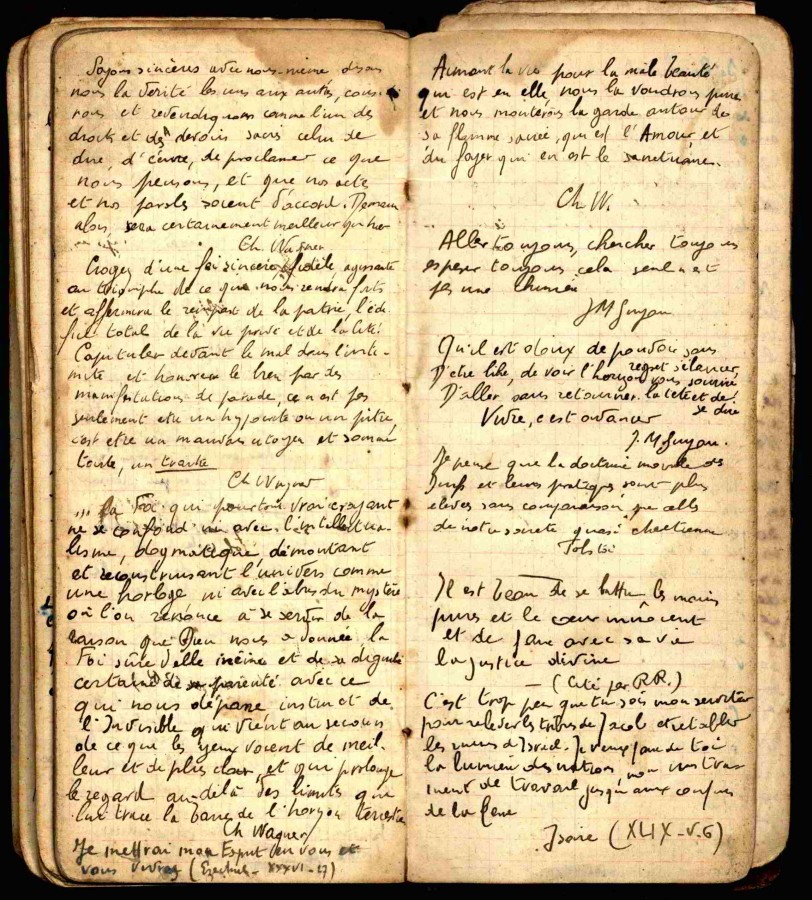 Soyons sincères avec nous-même disons
nous la vérité les uns aux autres,
nous et revendiquons comme l'un des
droits et des devoirs sacrés celui de
dire, d'écrire, de proclamer ce que
nous pensons, et que nos actes
et nos paroles soient d'accord. Demain
alors, sera certainement meilleur qu'hier
Ch. Wagner
Croyez d'une foi sincère, fidèle, agissante
au triomphe de ce qui nous rendra forts
et affermira le rempart de la patrie, l'édi-
fice total de la vie privée et de la cité!
Capituler devant le mal dans l'inti-
mité et honorer le bien par des
manifestations de parade, ce n'est pas
seulement etre un hypocrite ou un pitre,
c'est etre un mauvais citoyen et somme
toute, un traitre
Ch Wagner
... la Foi qui pour tout vrai croyant
ne se confond ni avec l'intellectua-
lisme, dogmatique, démontant
et reconstruisant l'univers comme
une horloge ni avec l'abus du mystère
où l'on renonce à se servir de la
raison que Dieu nous a donnée, la
Foi sûre d'elle même et de sa dignité
certaine de sa parenté avec ce
qui nous dépasse instruit de
l'Invisible qui vient au secours
de ce que les yeux voient de meil-
leur et de plus clair, et qui prolonge
le regard au-delà des limites que
lui trace la barre de l'horizon terrestre
Ch Wagner
Je mettrai mon Esprit en vous et
vous vivrez (Ezechiel - XXXVI - 27)
Aimant la vie pour la mâle beauté
qui est en elle, nous la voudrons pure
et nous monterons la garde autour de
sa flamme sacrée, qui est l'Amour et
du foyer qui en est le sanctuaire.
Ch W.
Aller toujours, chercher toujours
espérer toujours cela seul n'est
pas une chimère
J M Guyau
Qu'il est doux de pouvoir sans regret s'élancer,
D'etre libre, de voir l'horizon vous sourire
D'aller sans retourner la tete et de se dire
Vivre, c'est avancer
J. M Guyau.
Je pense que la doctrine morale des
Juifs et leurs pratiques sont plus
élevées sans comparaison, que celles
de notre société quasi chretienne
Tolstoï
Il est beau de se battre les mains
pures et le cœur innocent
et de faire avec sa vie
la justice divine
— (Cité par R.R.)
C'est trop peu que tu sois mon serviteur
pour relever les tribus de Jacob et rétablir
les ruines d'Israel. Je veux faire de toi
la lumière des nations,
de travail jusqu'aux confins
de la Terre
Isaie (XLIX - v. 6)